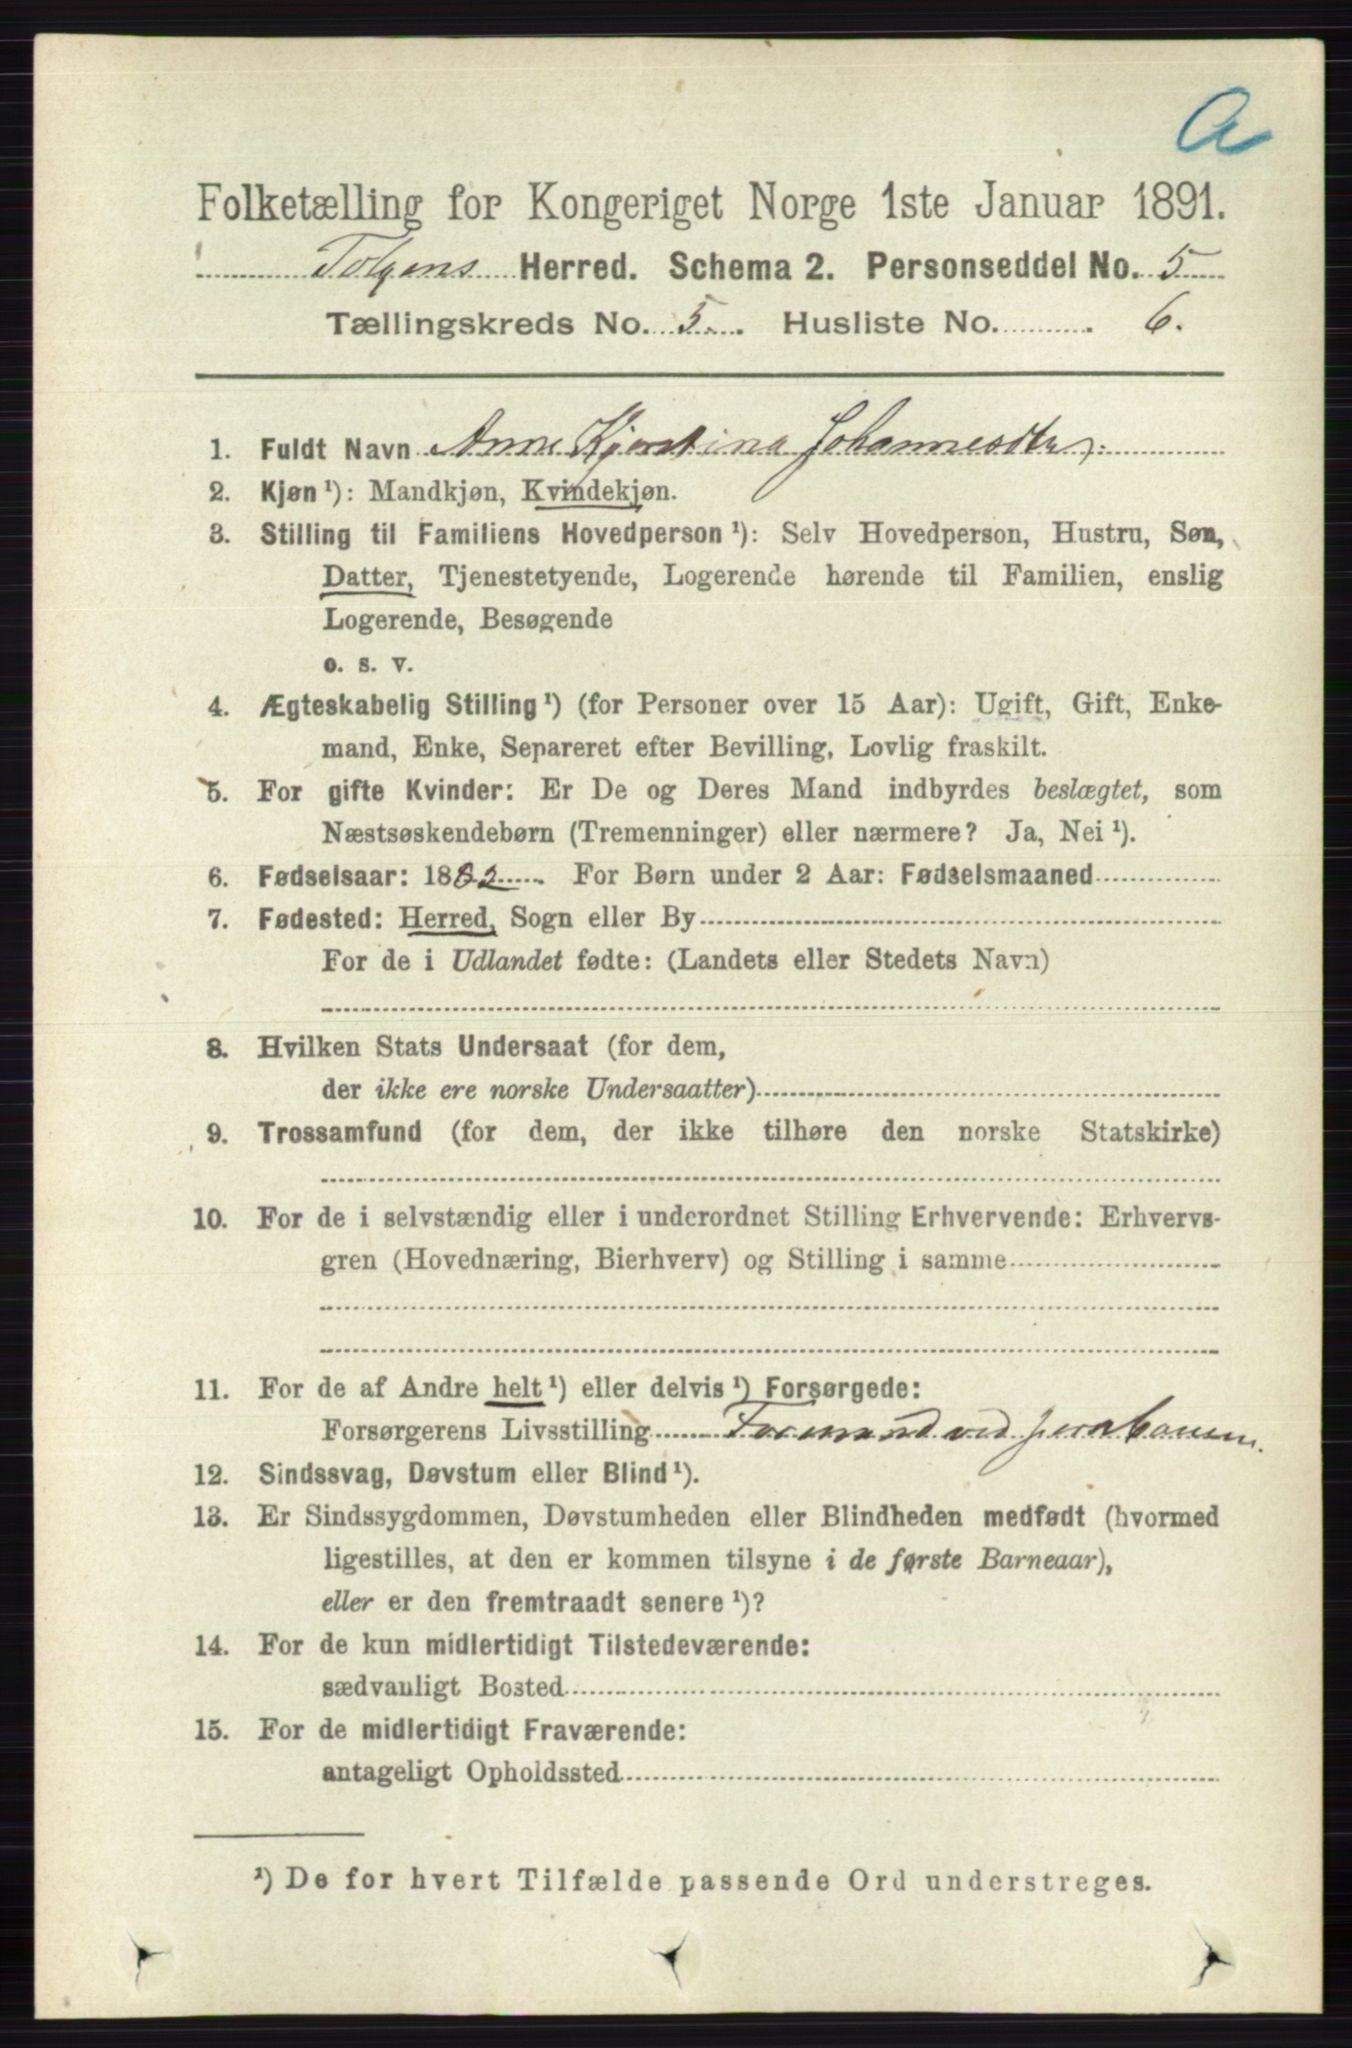 a
Folketælling for Kongeriget Norge 1ste Januar 1891.
Tolgens Herred. Schema 2. Personseddel No. 5
Tællingskreds No. 5. Husliste No. 6.
1. Fuldt Navn Anne Kjerstina Johannesdtr.
2. Kjøn ¹): Mandkjøn, Kvindekjøn.
3. Stilling til Familiens Hovedperson ¹): Selv Hovedperson, Hustru, Søn,
Datter, Tjenestetyende, Logerende hørende til Familien, enslig
Logerende, Besøgende
o. s. v.
4. Ægteskabelig Stilling ¹) (for Personer over 15 Aar): Ugift, Gift, Enke-
mand, Enke, Separeret efter Bevilling, Lovlig fraskilt.
5. For gifte Kvinder: Er De og Deres Mand indbyrdes beslægtet, som
Næstsøskendebørn (Tremenninger) eller nærmere? Ja, Nei ¹).
6. Fødselsaar: 1882. For Børn under 2 Aar: Fødselsmaaned
7. Fødested: Herred, Sogn eller By
For de i Udlandet fødte: (Landets eller Stedets Navn)
8. Hvilken Stats Undersaat (for dem,
der ikke ere norske Undersaatter)
9. Trossamfund (for dem, der ikke tilhøre den norske Statskirke)
10. For de i selvstændig eller i underordnet Stilling Erhvervende: Erhvervs-
gren (Hovednæring, Bierhverv) og Stilling i samme
11. For de af Andre helt ¹) eller delvis ¹) Forsørgede:
Forsørgerens Livsstilling Formand ved jernbanen.
12. Sindssvag, Døvstum eller Blind ¹).
13. Er Sindssygdommen, Døvstumheden eller Blindheden medfødt (hvormed
ligestilles, at den er kommen tilsyne i de første Barneaar),
eller er den fremtraadt senere ¹)?
14. For de kun midlertidigt Tilstedeværende:
sædvanligt Bosted
15. For de midlertidigt Fraværende:
antageligt Opholdssted
¹) De for hvert Tilfælde passende Ord understreges.